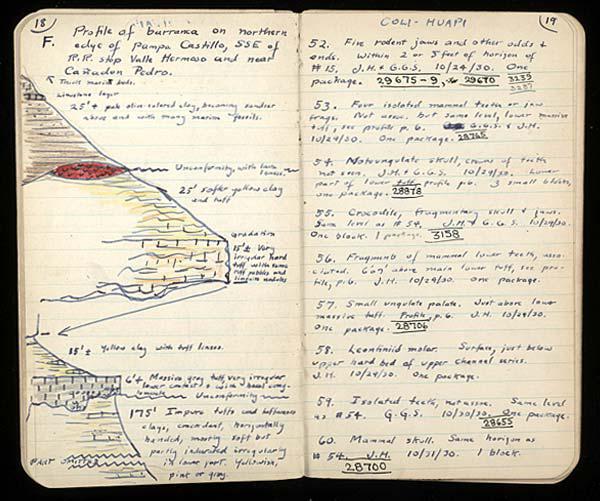 18
F. Profile of barranca on northern
edge of Pampa Castillo, SSE of
R.R. stop Valle Hermoso and near
Cañadon Pedro.
Thick marine beds.
Limestone layer
25' ± pale olive-colored clay, becoming sandier
above and with many marine fossils.
Unconformity, with lava
lenses.
25' softer yellow clay
and tuff
gradation
15' ± Very
irregular hard
tuff with some
tuff pebbles and
limonite nodules
15' ± Yellow clay with tuff lenses.
6' ± Massive gray tuff, very irregular
lower contact & with basal cong-
lomerate
Unconformity
175' Impure tuffs and tuffaceous
clays, concordant, horizontally
banded, mostly soft but
partly indurated irregularly
in lower part. Yellowish,
pink or gray.
19
COLI-HUAPI
52. Five rodent jaws and other odds &
ends. Within 2 or 3 feet of horizon of
#15. J.H. & G.G.S. 10/24/30. One
package. 29675-9, 29670 3239
3237
53. Four isolated mammal teeth or jaw
frags. Not assoc. but same level, lower massive
tuff, see profile p. 6. G.G.S. & J.H.
10/29/30. One package. 28765
54. Notoungulate skull, crowns of teeth
not seen. J.H. & G.G.S. 10/29/30. Lower
part of lower tuff profile p. 6. 3 small blocks,
one package. 28878
55. Crocodile, fragmentary skull & jaws.
Same level as #54. J.H. & G.G.S. 10/29/30.
One block. 1 package. 3158
56. Fragments of mammal lower teeth, asso-
ciated. above main lower tuff, see pro-
file, p. 6. J.H. 10/29/30. One package.
57. Small ungulate palate. Just above lower
massive tuff. Profile, p. 6. J.H. 10/29/30.
One package. 28706
58. Leontiniid molar. Surface, just below
upper hard bed of upper channel series.
J.H. 10/29/30. One package.
59. Isolated teeth, not assoc. Same level
as #54. G.G.S. 10/30/30. One package.
28655
60. Mammal skull. Same horizon as
#54. J.H. 10/31/30. 1 block.
28700